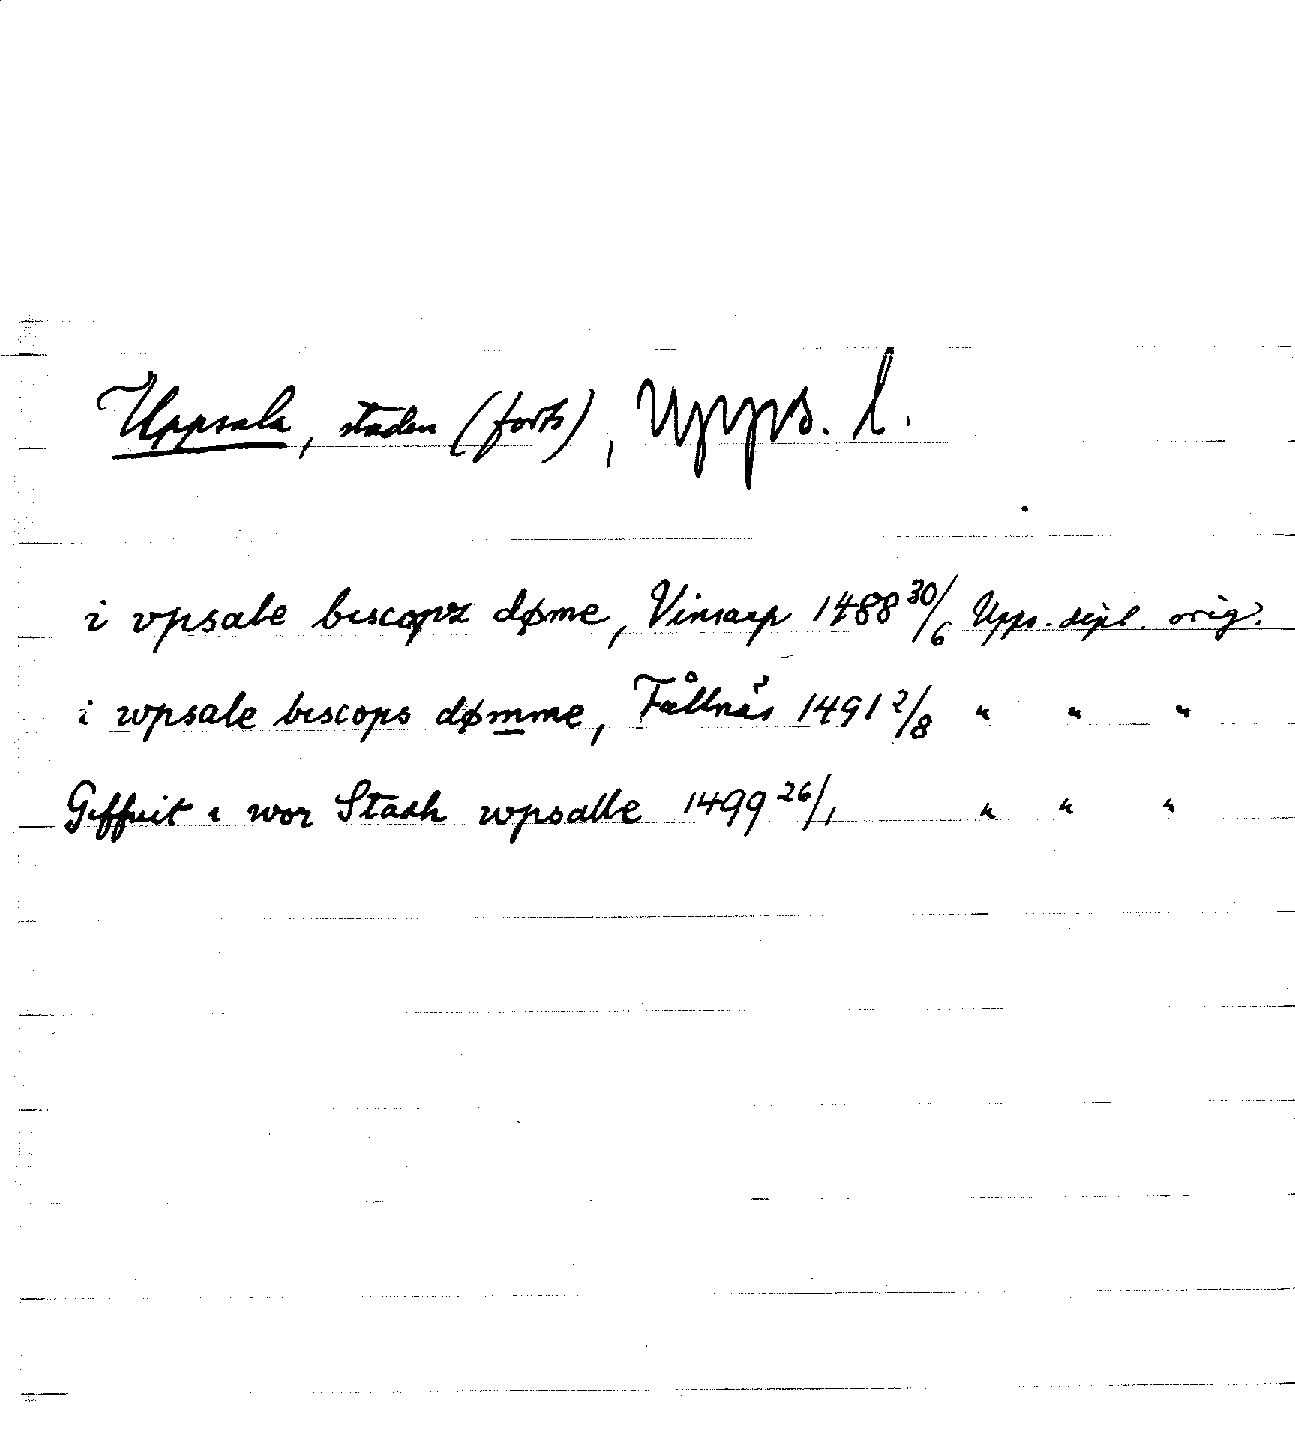 Uppsala, staden (forts), Upps. l.
i vpsale biscopz døme, Vinsarp 1488 30/6 Upps. dipl. orig.
i wpsale biscops dømme, Fållnäs 1491 2/8 " " "
Giffuit i wor Stadh wpsalle 1499 26/1 " " "